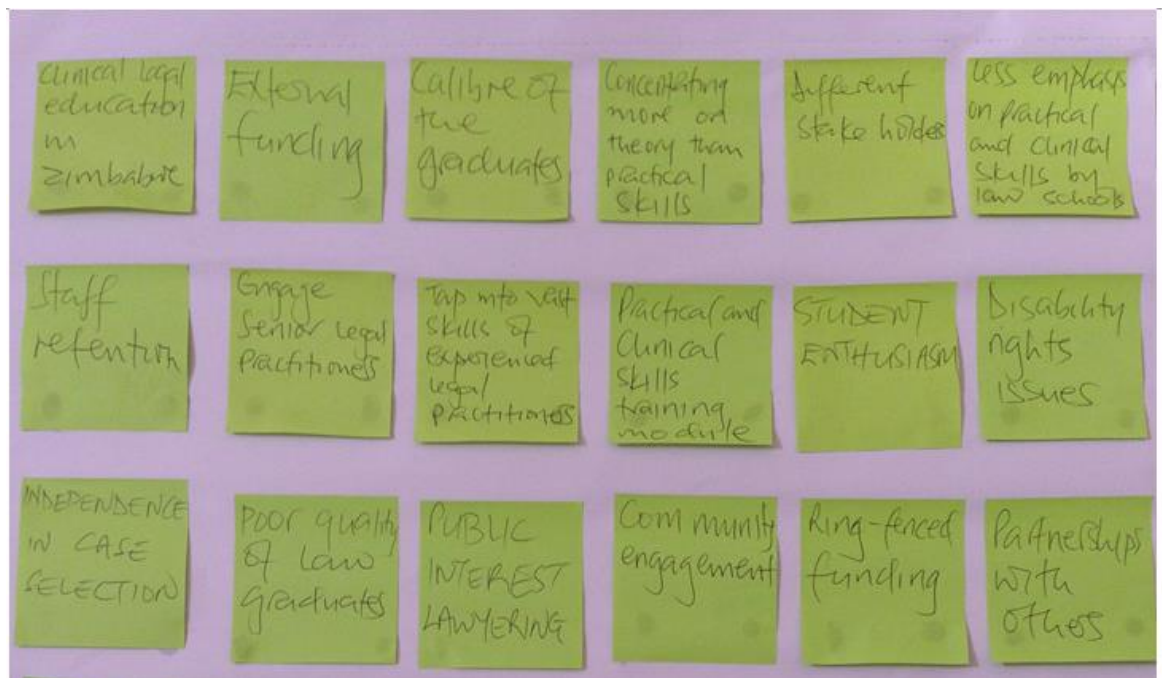 Clinical legal
education
in
Zimbabwe
External
funding
Calibre of
the
graduates
Concentrating
more on
theory than
practical
skills
Different
stake holdes
Less emphasis
on practical
and clinical
skills by
law schools
Staff
retention
Engage
Senior legal
Practitioners
Tap into vast
skills of
experienced
legal
practitioners
Practical and
Clinical
skills
training
module
STUDENT
ENTHUSIASM
Disability
rights
issues
INDEPENDENCE
IN CASE
SELECTION
Poor quality
of Law
graduates
PUBLIC
INTEREST
LAWYERING
Community
engagement
Ring-fenced
funding
Partnerships
with
others